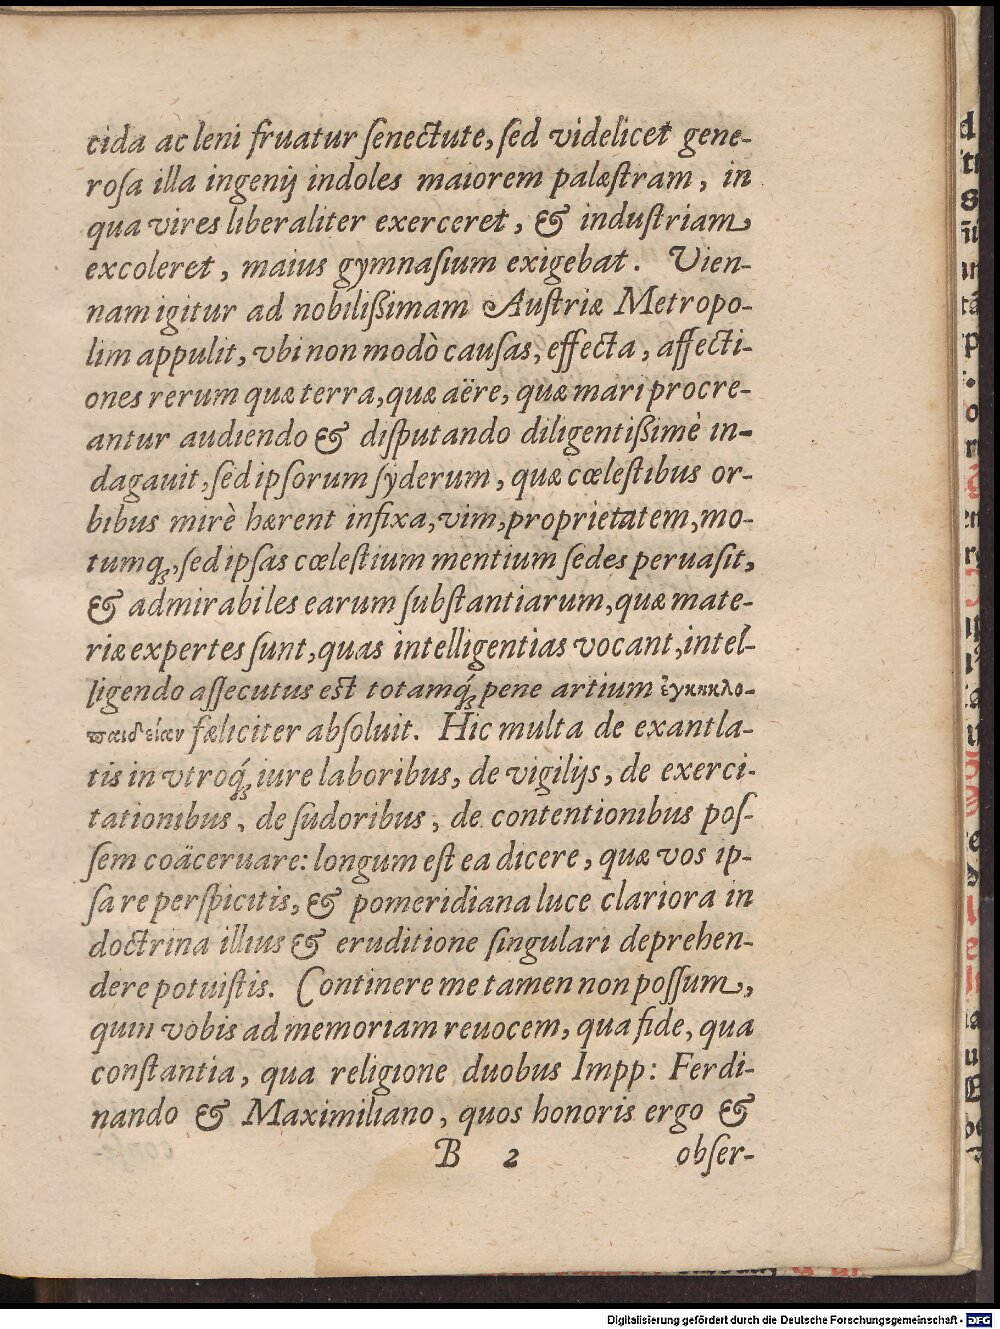 cida ac leni fruatur ſenectute, ſed videlicet gene-
roſa illa ingenij indoles maiorem palæſtram, in
qua vires liberaliter exerceret, & induſtriam
excoleret, maius gymnaſium exigebat. Vien-
nam igitur ad nobilißimam Auſtriæ Metropo-
lim appulit, vbi non modò cauſas, effecta, affecti-
ones rerum quæ terra, quæ aëre, quæ mari procre-
antur audiendo & diſputando diligentißimè in-
dagauit, ſed ipſorum ſyderum, quæ cœleſtibus or-
bibus mirè hærent infixa, vim, proprietatem, mo-
tumq́;, ſed ipſas cœleſtium mentium ſedes peruaſit,
& admirabiles earum ſubſtantiarum, quæ mate-
riæ expertes ſunt, quas intelligentias vocant, intel-
ligendo aſſecutus eſt totamq́; pene artium ἐγκυκλο-
παιδείαν fæliciter abſoluit. Hic multa de exantla-
tis in vtroq́; iure laboribus, de vigilijs, de exerci-
tationibus, de ſudoribus, de contentionibus poſ-
ſem coäceruare: longum eſt ea dicere, quæ vos ip-
ſa re perſpicitis, & pomeridiana luce clariora in
doctrina illius & eruditione ſingulari deprehen-
dere potuiſtis. Continere me tamen non poſſum,
quin vobis ad memoriam reuocem, qua fide, qua
conſtantia, qua religione duobus Impp: Ferdi-
nando & Maximiliano, quos honoris ergo &
B 2 obſer-
Digitalisierung gefördert durch die Deutsche Forschungsgemeinschaft - DFG